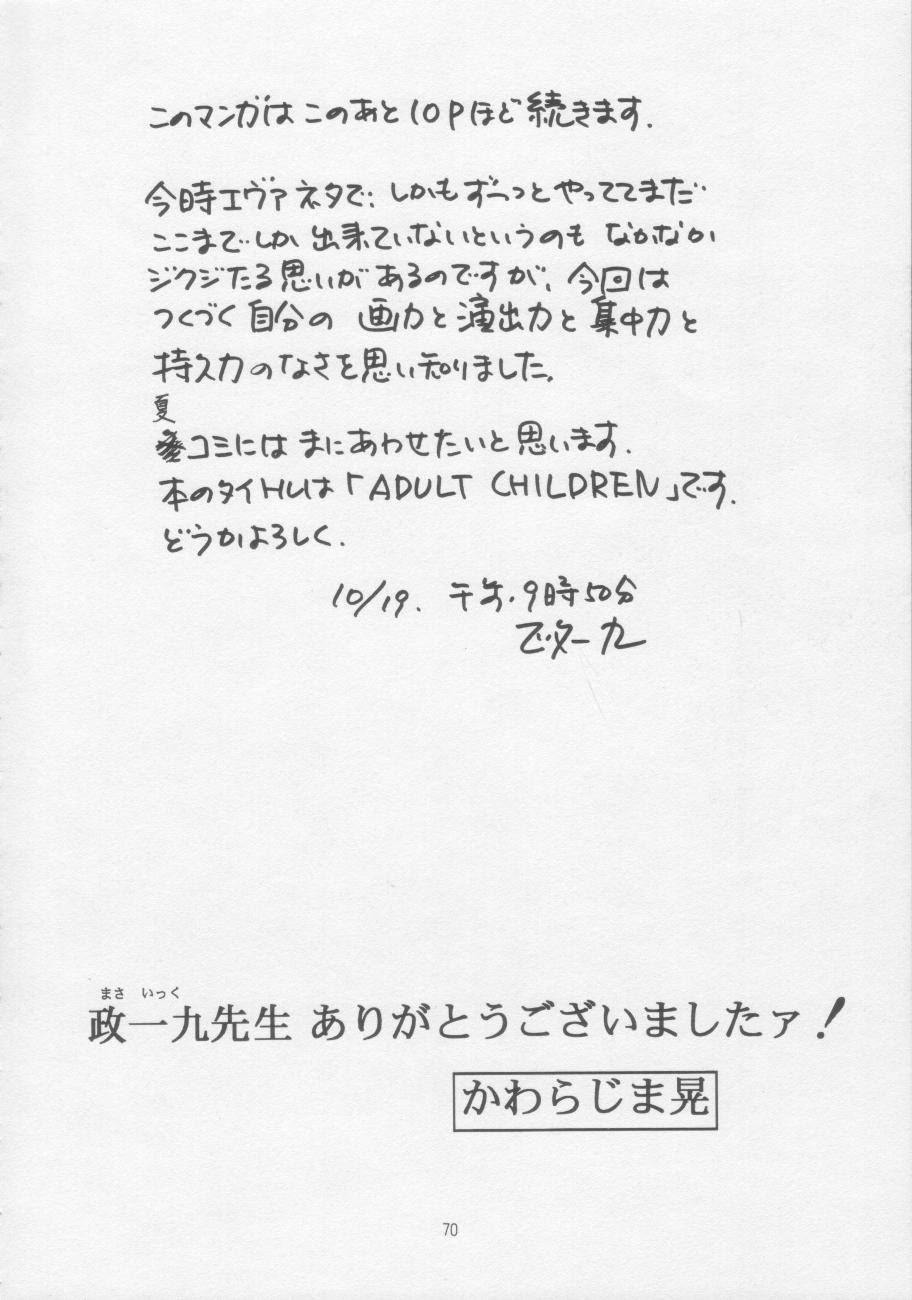 このマンガは このあと10Pほど続きます.
今時エヴァネタで、しかもずーっとやっててまだ
ここまでしか出来ていないというのも なかなか
ジクジたる思いがあるのですが、今回は
つくづく自分の 画力と演出力と集中力と
持久力のなさを思い知りました.
夏
コミには まにあわせたいと思います.
本のタイトルは「ADULT CHILDREN」です.
どうかよろしく.
10/19. 午前.9時50分
政一九
まさ いっく
政一九先生 ありがとうございましたァ!
かわらじま晃
70